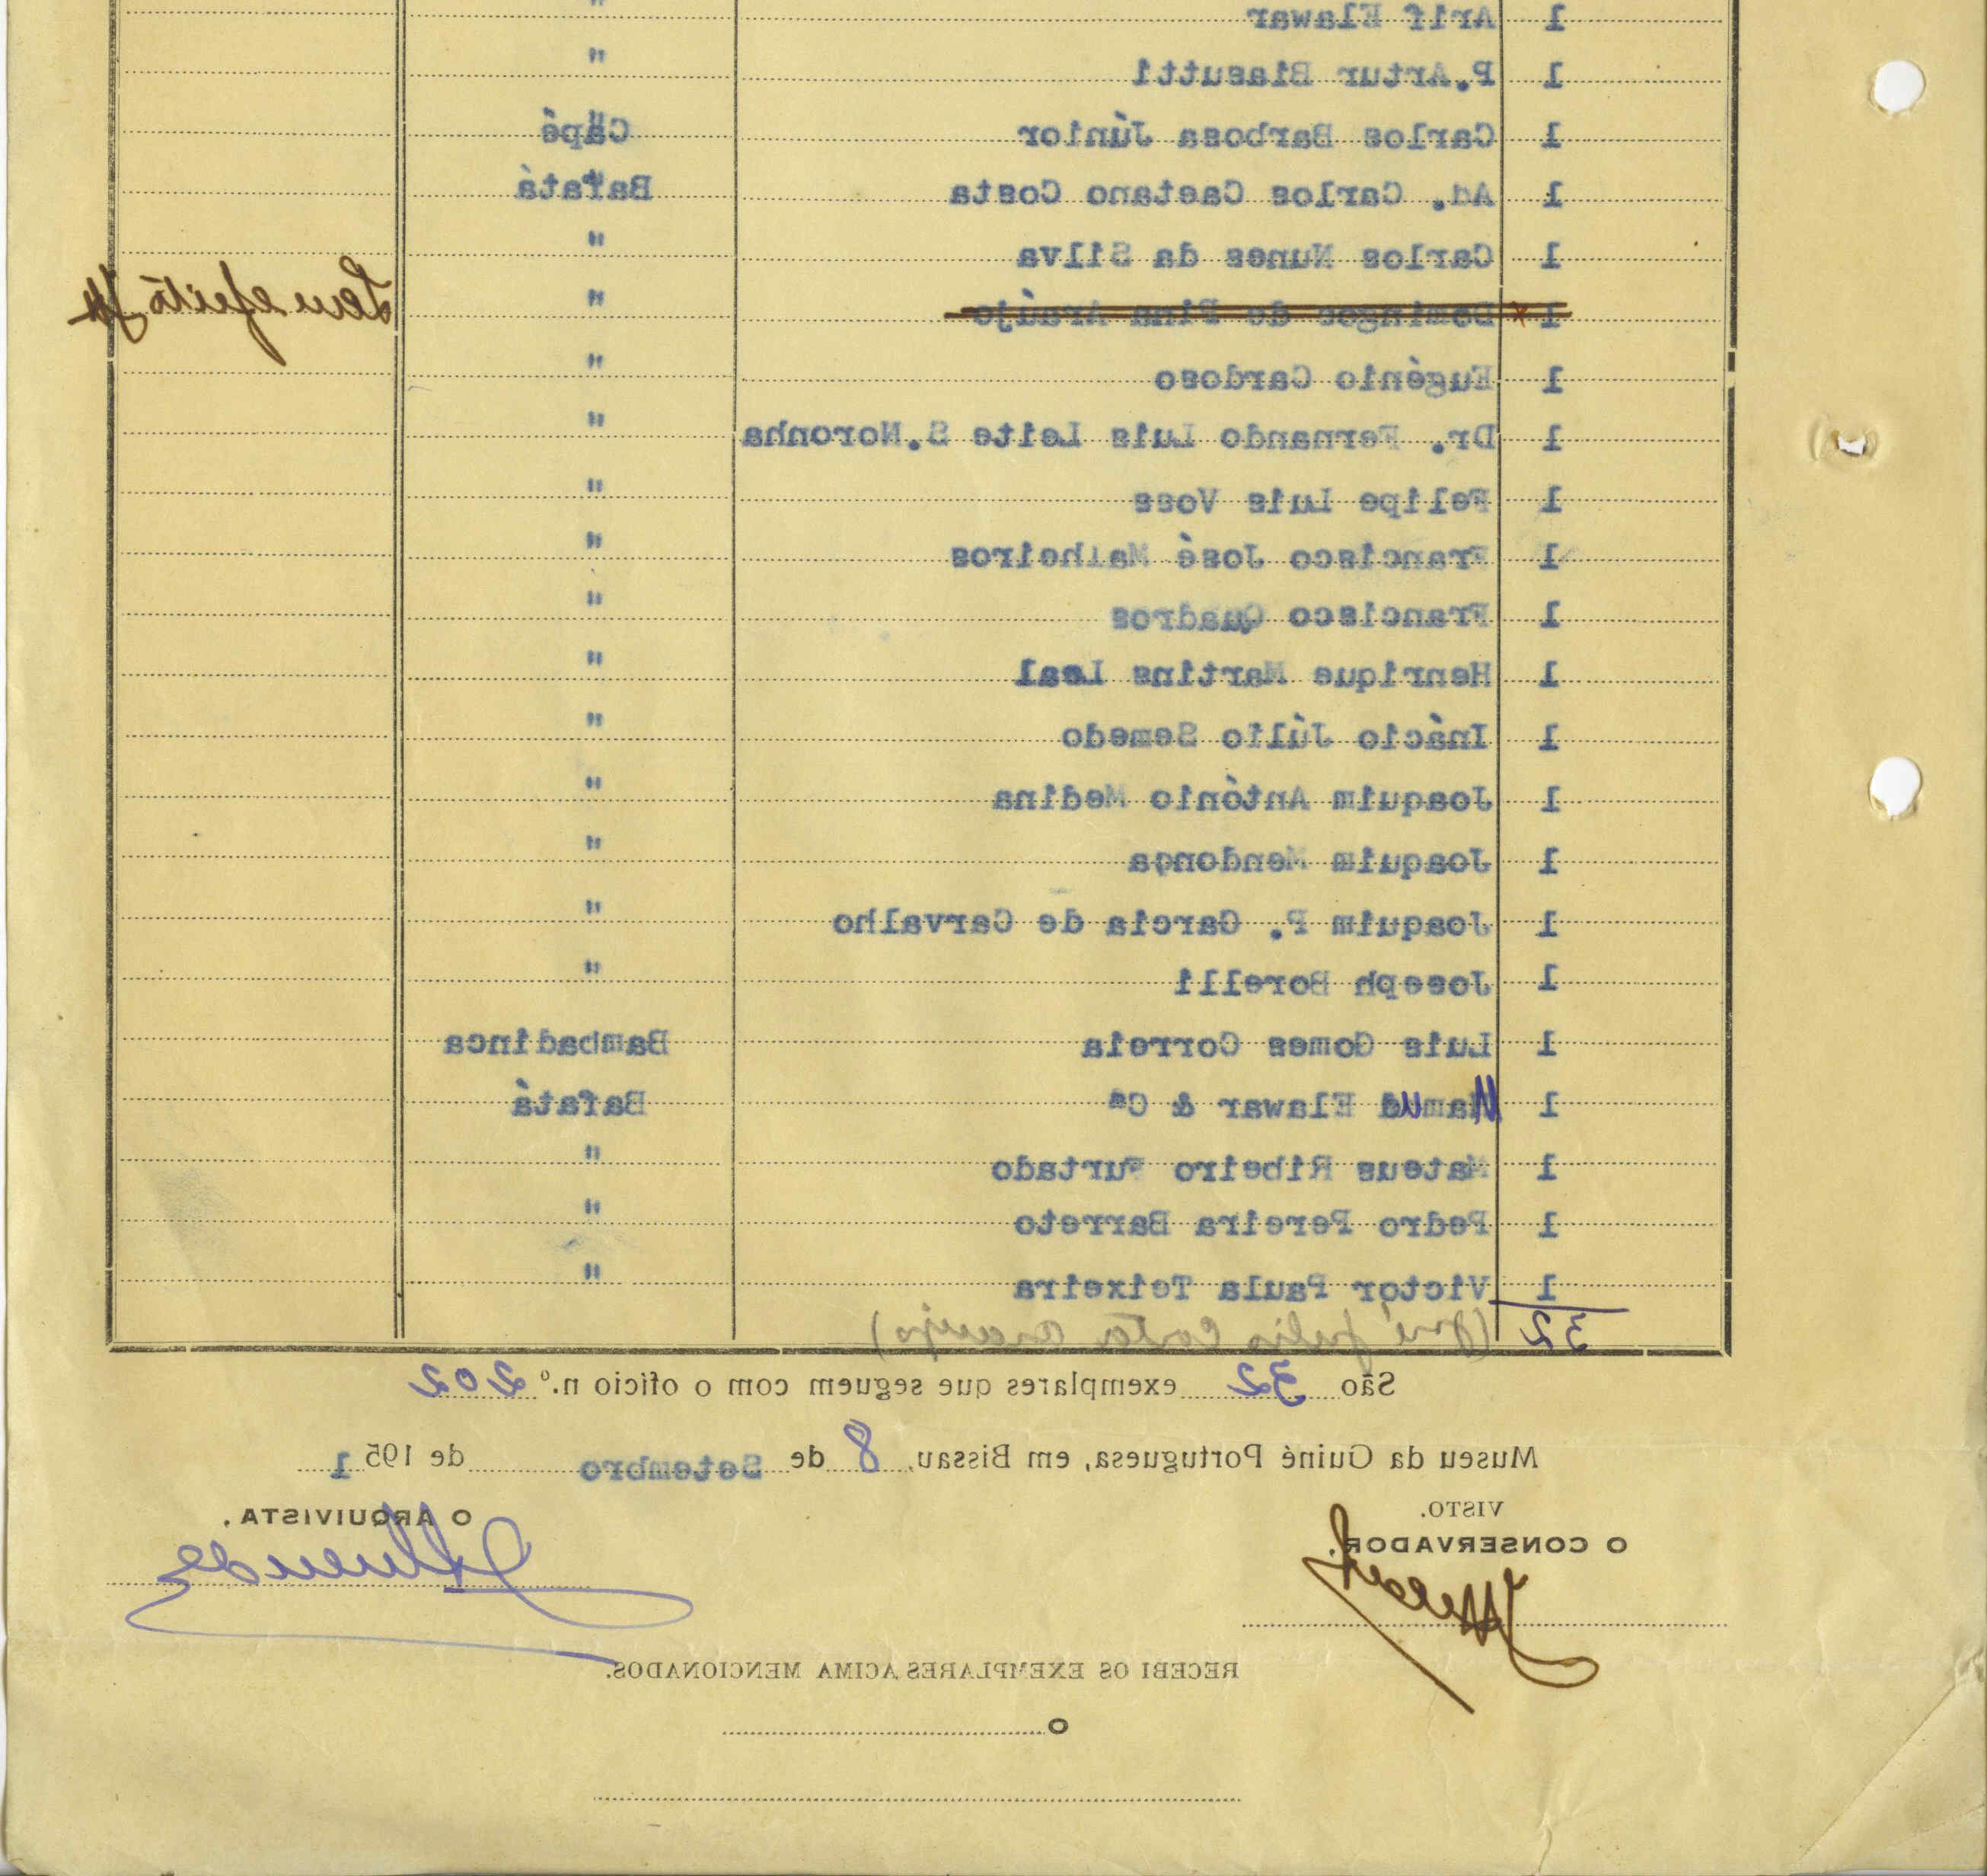 1 Arif Elawar "
1 P.Artur Biasutti "
1 Carlos Barbosa Júnior Capé
1 Ad. Carlos Caetano Costa Bafatá
1 Carlos Nunes da Silva "
1 Domingos de Pina Araújo " Sem efeito
1 Eugénio Cardoso "
1 Dr. Fernando Luis Leite S.Noronha "
1 Felipe Luis Voss "
1 Francisco José Malheiros "
1 Francisco Quadros "
1 Henrique Martins Leal "
1 Inácio Júlio Semedo "
1 Joaquim António Medina "
1 Joaquim Mendonça "
1 Joaquim P. Garcia de Carvalho "
1 Joseph Borelli "
1 Luis Gomes Correia Bambadinca
1 Mamud Elawar & Cª Bafatá
1 Mateus Ribeiro Furtado "
1 Pedro Pereira Barreto "
1 Victor Paula Teixeira "
32 (José Julio Costa Araujo)
São 32 exemplares que seguem com o ofício n.º 202
Museu da Guiné Portuguesa, em Bissau, 8 de Setembro de 1951
VISTO.
O CONSERVADOR, O ARQUIVISTA,
RECEBI OS EXEMPLARES ACIMA MENCIONADOS.
O